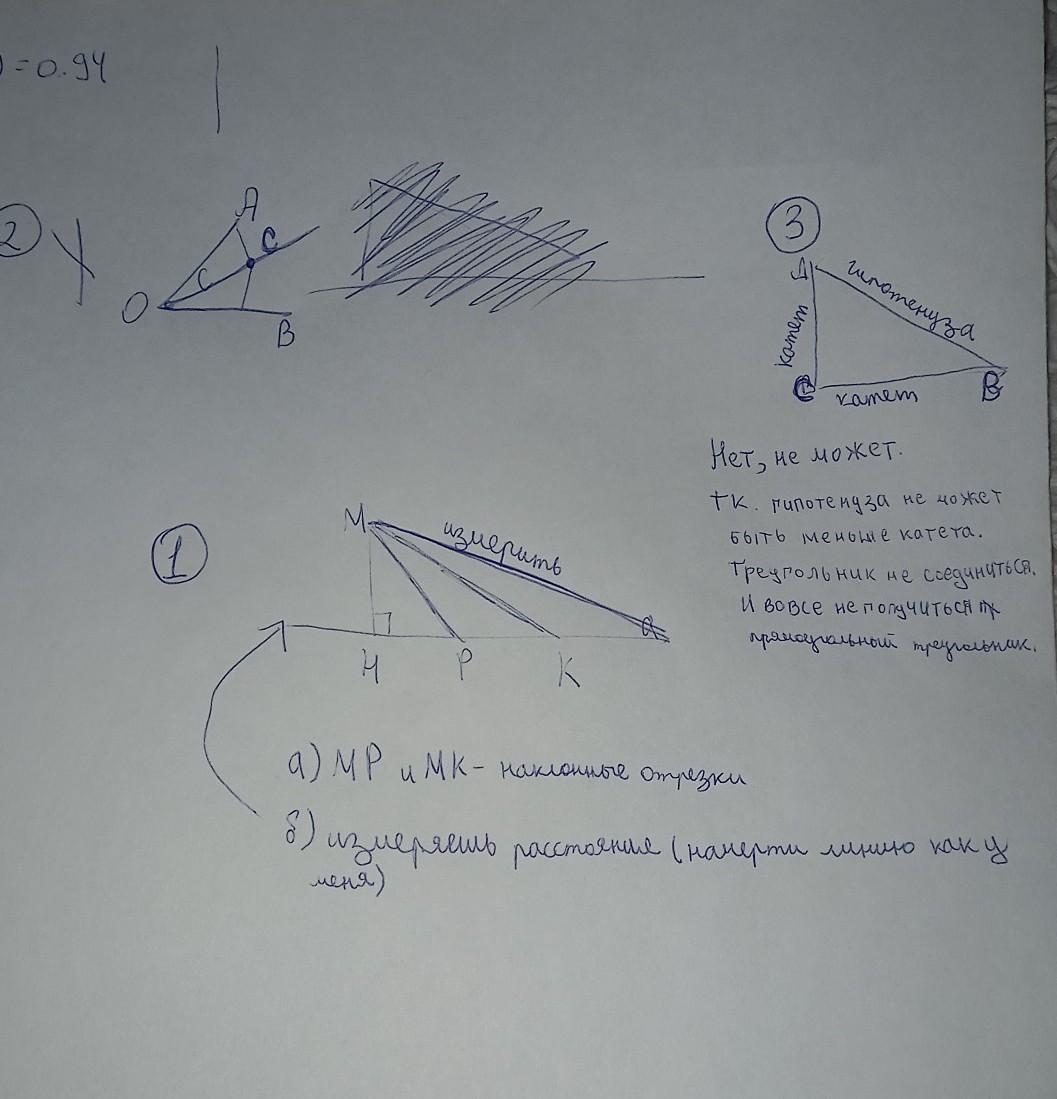 )=0.94
2
A
C
C
O
B
3
A
гипотенуза
катет
C
катет
B
Нет, не может.
тк. гипотенуза не может
быть меньше катета.
Треугольник не соединиться.
И вовсе не получиться
прямоугольный треугольник.
1
M
измерить
a
H
P
K
а) MP и MK - наклонные отрезки
б) измеряешь расстояние (начерти линию как у
меня)